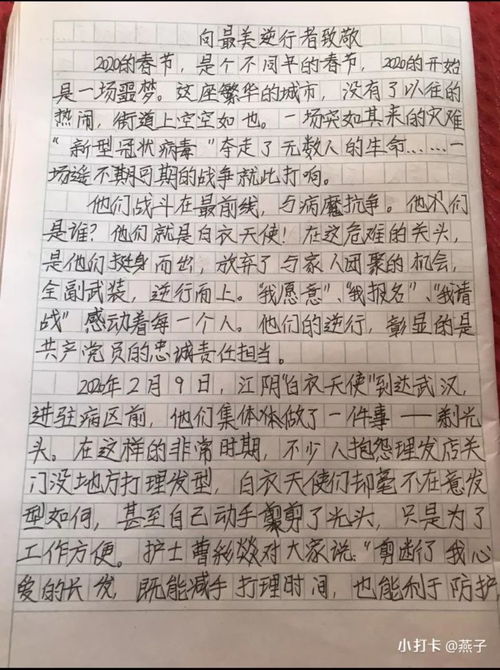 向最美逆行者致敬
2020的春节，是个不同平的春节，2020的开始
是一场噩梦。这座繁华的城市，没有了以往的
热闹，街道上空空如也。一场突如其来的灾难
“新型冠状病毒”夺走了无数人的生命……一
场遥不期可期的战争就此打响。
他们战斗在最前线，与病魔抗争。他们
是谁？他们就是白衣天使！在这危难的关头，
是他们挺身而出，放弃了与家人团聚的机会，
全副武装，逆行而上。“我愿意”、“我报名”、“我请
战”感动着每一个人。他们的逆行，彰显的是
共产党员的忠诚责任担当。
2020年2月9日，江阴“白衣天使”到达武汉，
进驻病区前，他们集体做了一件事——剃光
头。在这样的非常时期，不少人抱怨理发店关
门没地方打理发型，白衣天使们却毫不在意发
型如何，甚至自己动手剪了光头，只是为了
工作方便。护士曹 对大家说：“剪断了我心
爱的长发，既能减少打理时间，也能利于防护，
小打卡@燕子